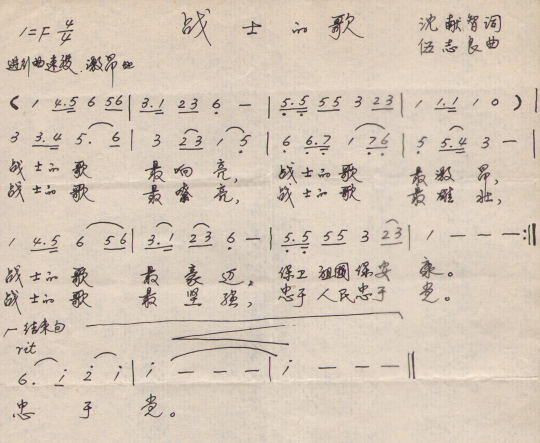 战士的歌
1=F 4/4
沈献智词
伍志良曲
进行曲速度 激昂地
( 1 4.5 6 56 | 3.1 23 6 — | 5.5 55 3 23 | 1 1.1 1 0 ) |
3 3.4 5. 6 | 3 23 1 5 | 6 6.7 1 76 | 5 5.4 3 — |
战士的歌 最响亮, 战士的歌 最激昂,
战士的歌 最嘹亮, 战士的歌 最雄壮,
1 4.5 6 56 | 3.1 23 6 — | 5.5 55 3 23 | 1 — — — :||
战士的歌 最豪迈, 保卫祖国保安康。
战士的歌 最坚强, 忠于人民忠于党。
结束句
rit
6. i 2 i | i — — — | i — — — ||
忠于党。